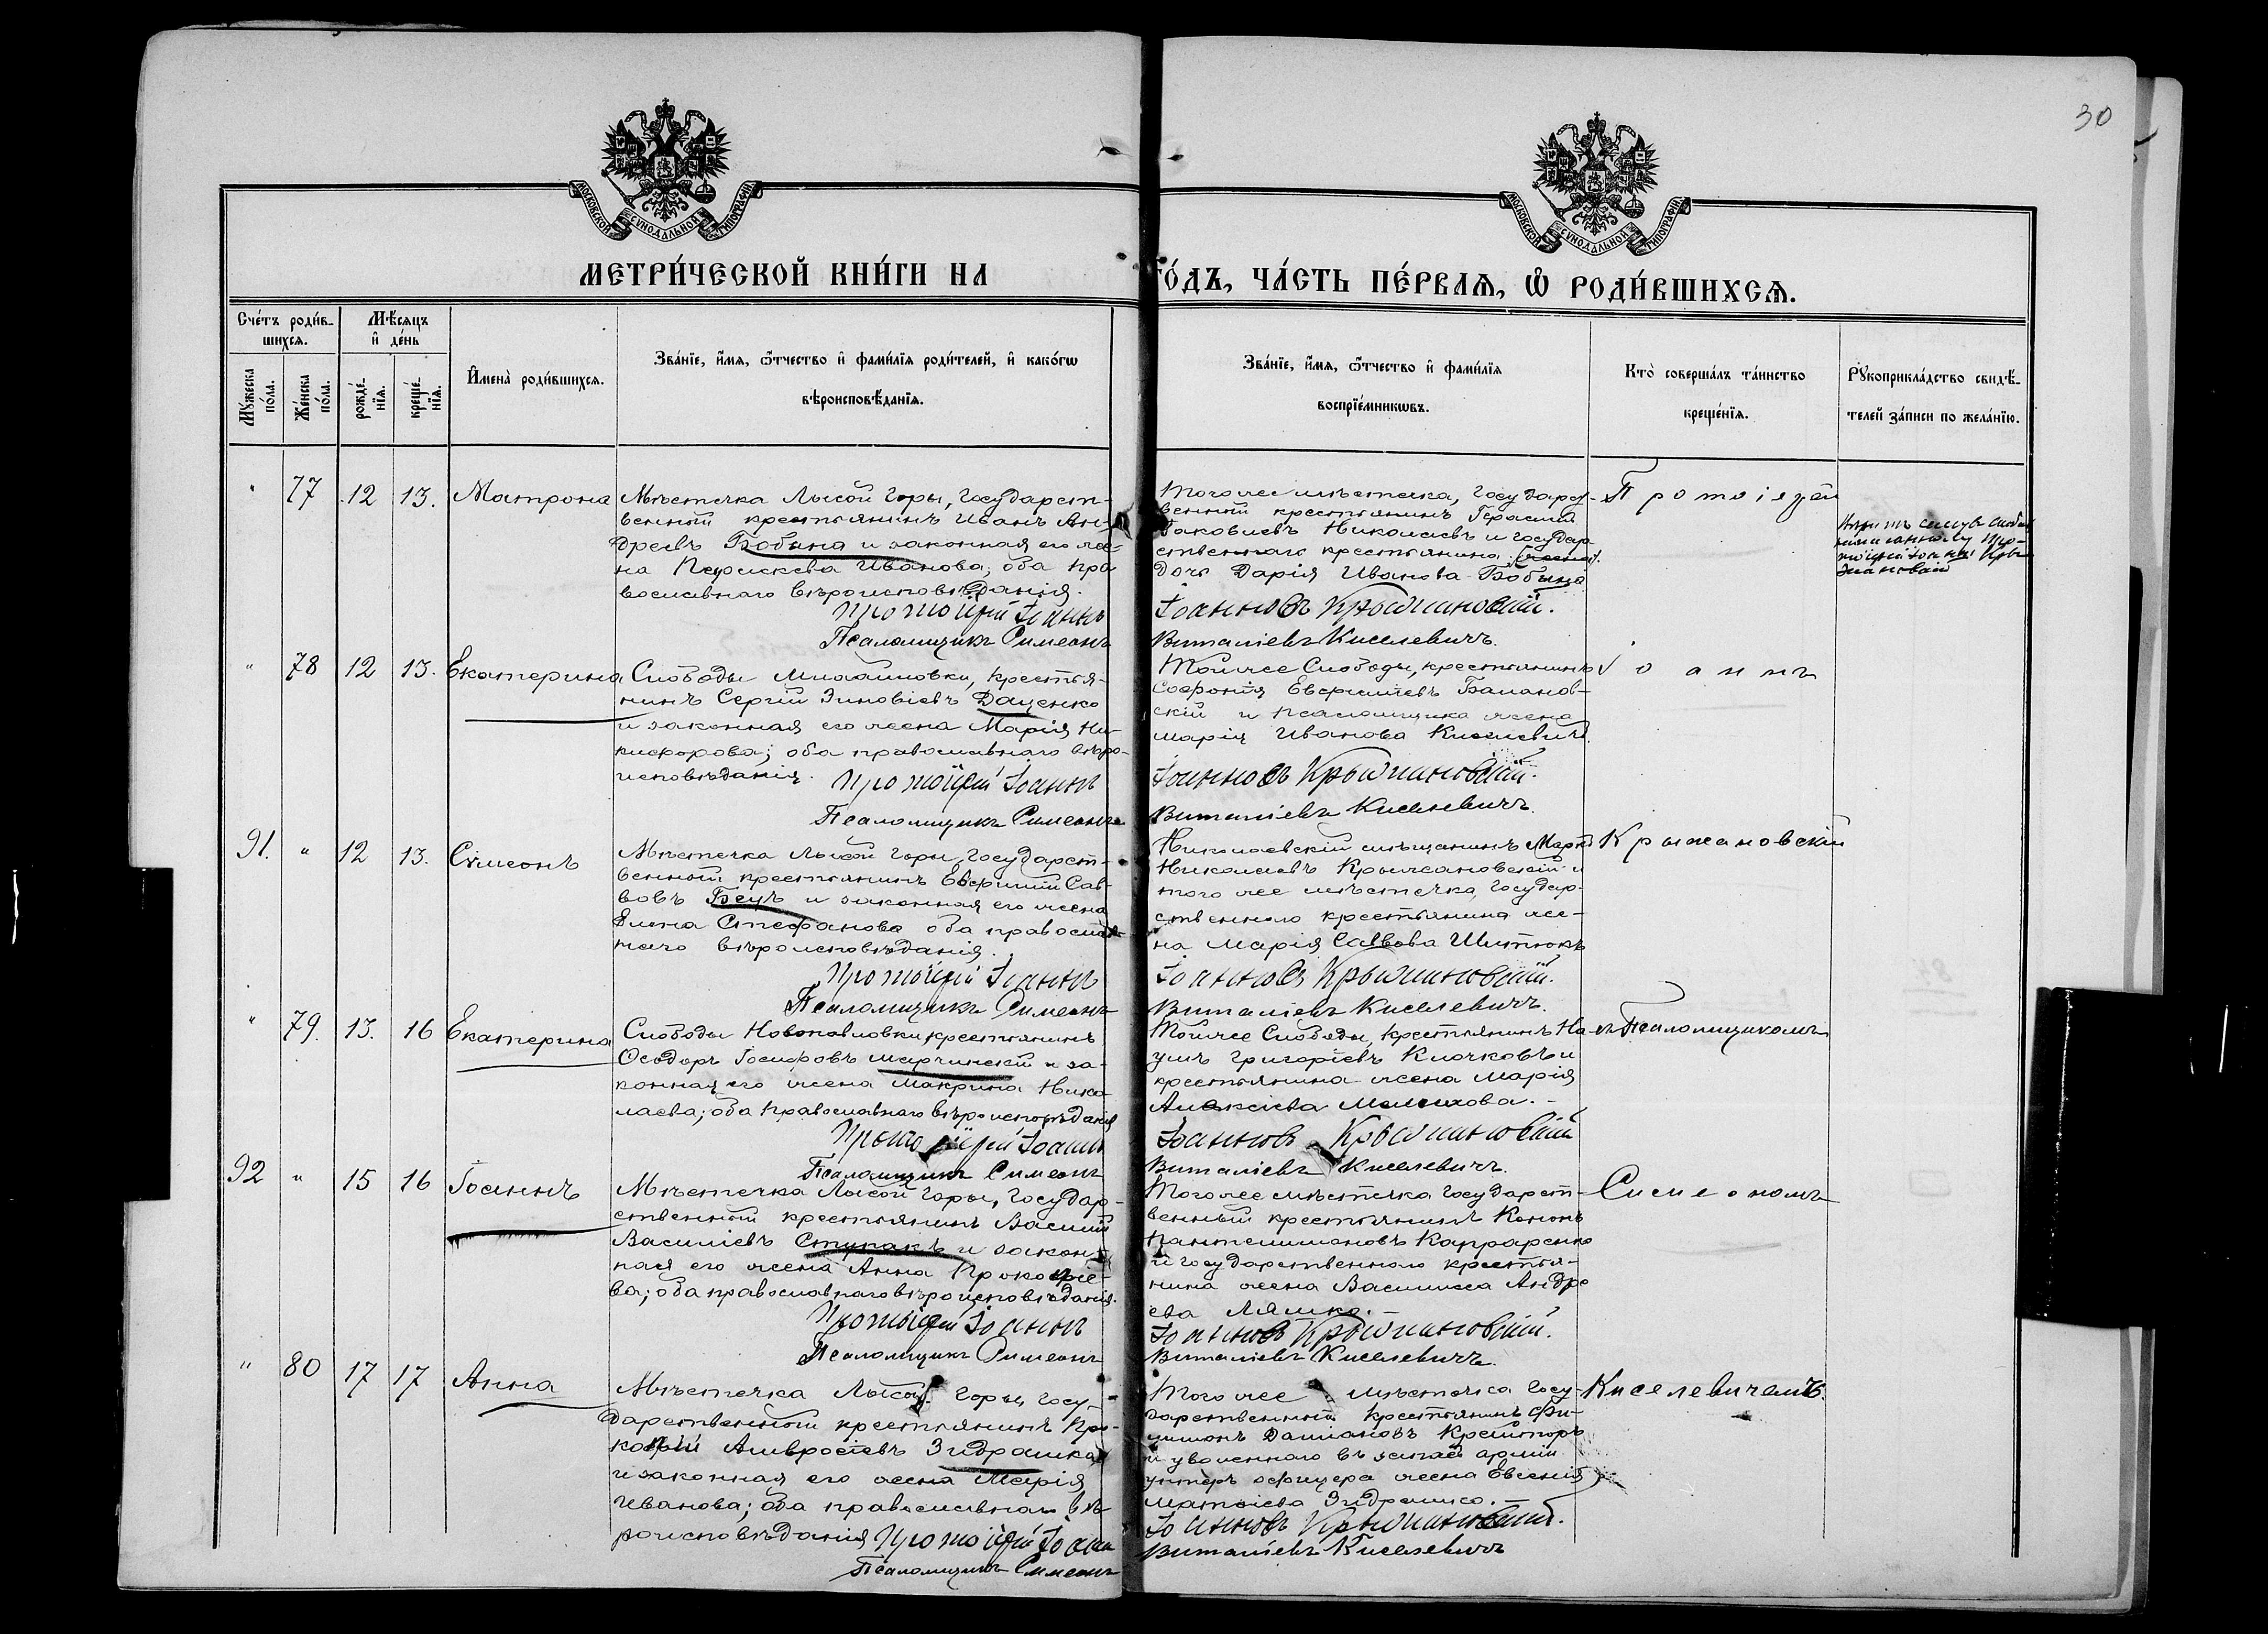 30
МОСКОВСКОЙ СѴНОДАЛЬНОЙ ТИПОГРАФІИ
МОСКОВСКОЙ СѴНОДАЛЬНОЙ ТИПОГРАФІИ
МЕТРИ́ЧЕСКОЙ КНИ́ГИ НА ГО́ДЪ, ЧА́СТЬ ПЕ́РВАѦ, Ѡ҆ РОДИ́ВШИХСѦ.
Сче́тъ роди́в-
шихсѧ.
Мꙋ́жеска по́ла.
Же́нска по́ла.
Мѣ́сѧцъ
и҆ де́нь
рожде́-нїѧ.
креще́-нїѧ.
И҆мена̀ роди́вшихсѧ.
Зва́нїе, и҆́мѧ, ѻ҆́тчество и҆ фами́лїѧ роди́телей, и҆ како́гѡ
вѣроисповѣ́данїѧ.
Зва́нїе, и҆́мѧ, ѻ҆́тчество и҆ фами́лїѧ
воспрїе́мникѡвъ.
Кто̀ соверша́лъ та́инство
креще́нїѧ.
Рꙋкоприкла́дство свидѣ́-
телей за́писи по жела́нїю.
" 77 12 13. Матрона
Мѣстечка Лысой Горы, Государст-
венный крестьянинъ Иванъ Ан-
дреевъ Бобына и законная его же-
на Параскева Иванова; оба пра
вославнаго вѣроисповѣданія.
Протоіерей Іоаннъ
Псаломщикъ Симеонъ
Того же мѣстечка, Государст-
венный крестьянинъ Герасимъ
Іаковлевъ Николаевъ и государ-
ственнаго крестьянина
дочь Дарія Иванова Бобына
Іоанновъ Крыжановскій.
Виталіевъ Киселевичъ.
Протоіерей
" 78 12 13. Екатерина
Слободы Михайловки, крестья-
нинъ Сергій Зиновіевъ Даценко
и законная его жена Марія Ни-
кифорова; оба православнаго вѣро-
исповѣданія.
Протоіерей Іоаннъ
Псаломщикъ Симеонъ
Той же Слободы, крестьянинъ
Софроній Евфиміевъ Балanов-
скій и псаломщика жена
Марія Иванова Киселевичъ.
Іоанновъ Крыжановскій.
Виталіевъ Киселевичъ.
Іоаннъ
91. " 12 13. Сѵмеонъ
Мѣстечка Лысой Горы, Государст-
венный крестьянинъ Евфимій Сав-
вовъ Бецъ и законная его жена
Елена Стефанова оба православ-
наго вѣроисповѣданія.
Протоіерей Іоаннъ
Псаломщикъ Симеонъ
Николаевскій мѣщанинъ
Николаевъ Крыжановскій и
того же мѣстечка, Государ-
ственнаго крестьянина же-
на Марія Саввова Шитюкъ
Іоанновъ Крыжановскій.
Виталіевъ Киселевичъ.
Крыжановскій
" 79. 13. 16 Екатерина
Слободы Новопавловки, крестьянинъ
Ѳеодоръ Іосифовъ Марчинскій и за-
конная его жена Макрина Нико-
лаева; оба православнаго вѣроисповѣданія
Протоіерей Іоаннъ
Псаломщикъ Симеонъ
Той же Слободы, крестьянинъ На-
умъ Григоріевъ Клочковъ и
крестьянина жена Марія
Алексіева
Іоанновъ Крыжановскій
Виталіевъ Киселевичъ.
съ Псаломщикомъ
92 " 15 16 Іоаннъ
Мѣстечка Лысой Горы, Государ-
ственный крестьянинъ Василій
Василіевъ Ступакъ и закон-
ная его жена Анна Прокофіе-
ва; оба православнаго вѣроисповѣданія.
Протоіерей Іоаннъ
Псаломщикъ Симеонъ
Того же мѣстечка Государст-
венный крестьянинъ Кононъ
Пантелимоновъ
и государственнаго крестья-
нина жена Василисса Андре
ева Ляшко.
Іоанновъ Крыжановскій.
Виталіевъ Киселевичъ.
Симеономъ
" 80 17 17 Анна
Мѣстечка Лысой Горы, Госу-
дарственный крестьянинъ Про-
кофій Амвросіевъ Зидрашко
и законная его жена Марія
Иванова; оба православнаго вѣ-
роисповѣданія
Протоіерей Іоаннъ
Псаломщикъ Симеонъ
Того же мѣстечка Госу-
дарственный крестьянинъ Фи-
лимонъ Даміановъ
и уволеннаго въ запасъ арміи
унтеръ офицера жена Евгенія
Матѳіева Зидрашко.
Іоанновъ Крыжановскій.
Виталіевъ Киселевичъ
Киселевичемъ.